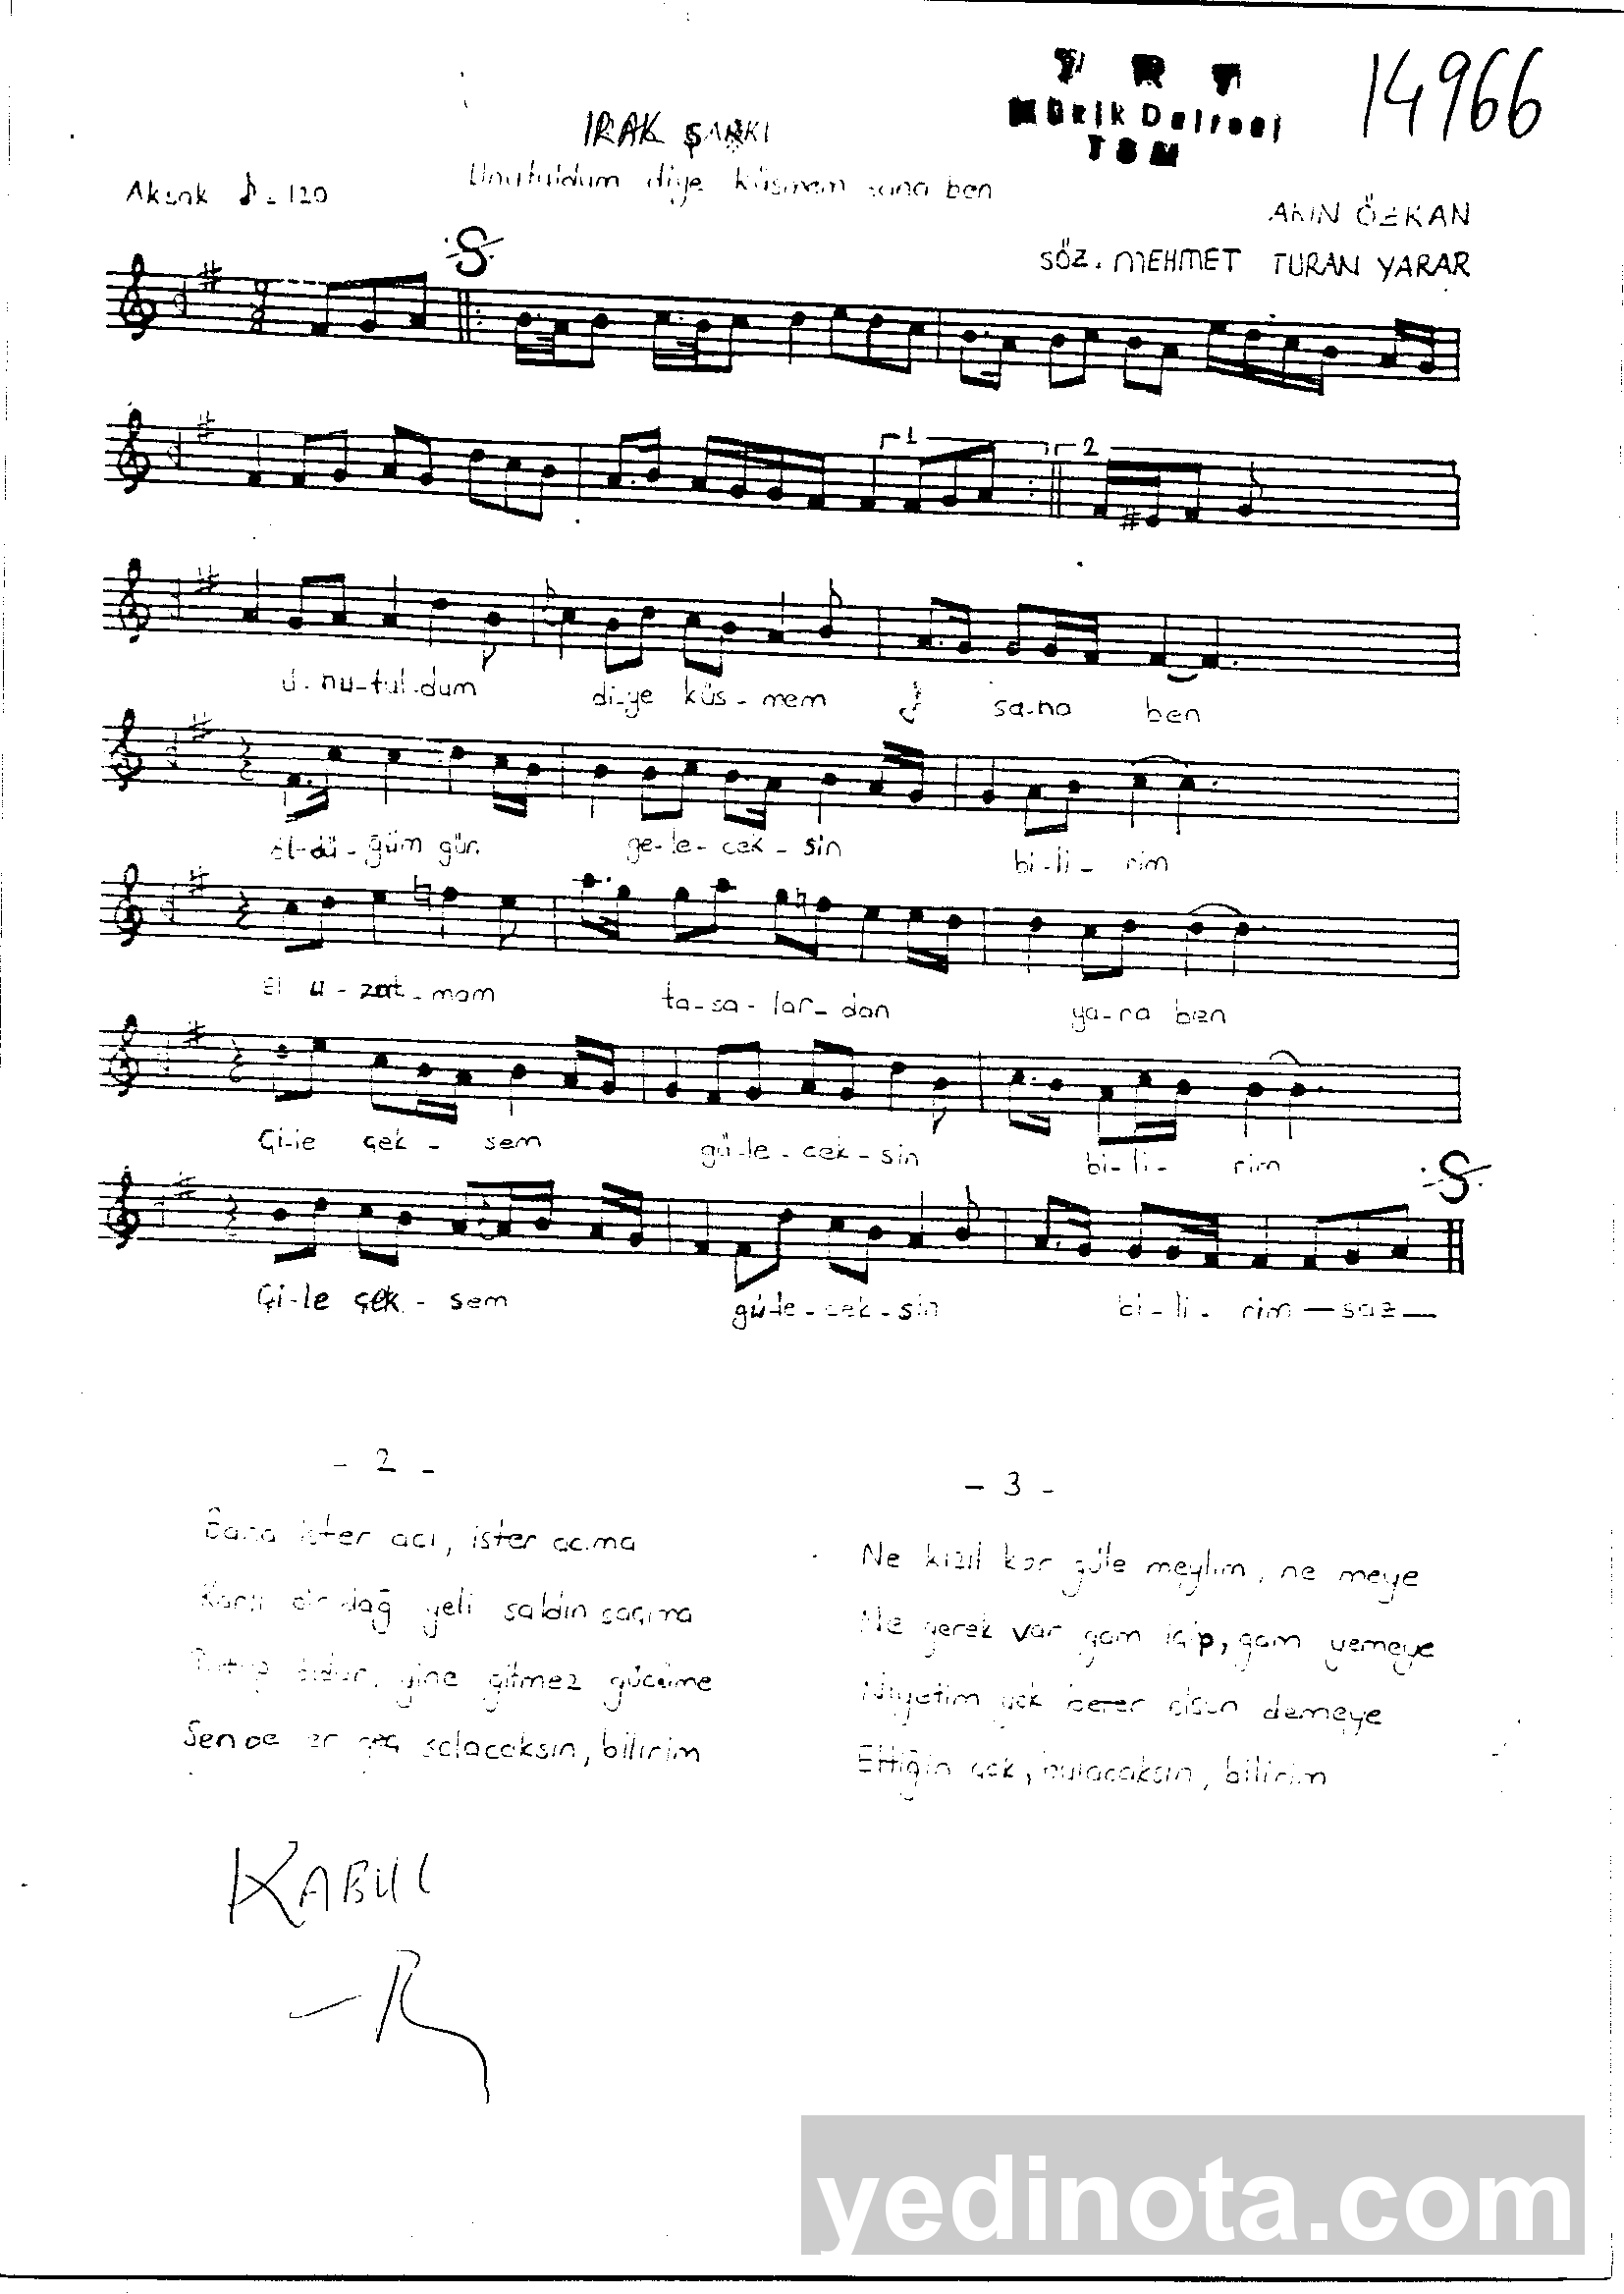 T R T
Müzik Dairesi
TSM
14966
IRAK ŞARKI
Unutuldum diye küsmem sana ben
Aksak ♪=120
AKIN ÖZKAN
SÖZ. MEHMET TURAN YARAR
1 2
U-nu-tul-dum di-ye küs-mem sa-na ben
öl-dü-ğüm gün ge-le-cek-sin bi-li-rim
El u-zat-mam ta-sa-lar-dan ya-ra ben
Çi-le çek-sem gü-le-cek-sin bi-li-rim
Çi-le çek-sem gü-le-cek-sin bi-li-rim — saz —
- 2 -
Bana ister acı, ister acıma
Karlı dağ yeli saldın saçıma
yine gitmez gücüme
Sen de er geç solacaksın, bilirim
- 3 -
Ne kızıl kor güle meylim, ne meye
Ne gerek var gam içip, gam yemeye
Niyetim yok beter olsun demeye
Ettiğin çok, bulacaksın, bilirim
KABUL
yedinota.com